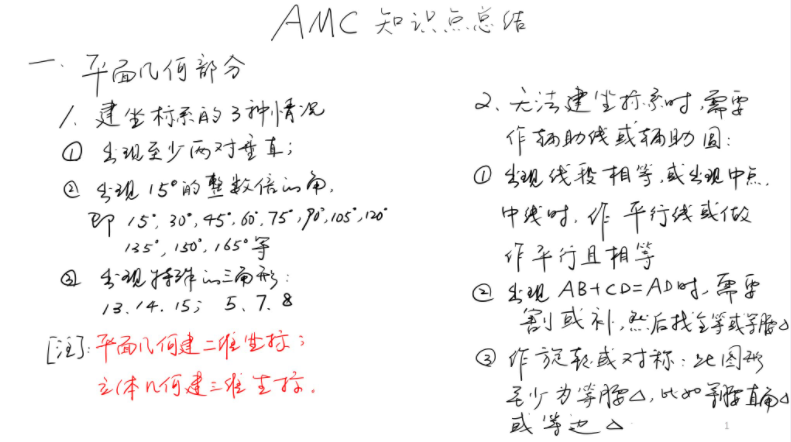 AMC 知识点总结
一. 平面几何部分
1. 建坐标系的3种情况
① 出现至少两对垂直;
② 出现15°的整数倍的角,
即 15°, 30°, 45°, 60°, 75°, 90°, 105°, 120°
135°, 150°, 165°等
③ 出现特殊的三角形:
13. 14. 15; 5. 7. 8
[注]: 平面几何建二维坐标;
立体几何建三维坐标.
2. 无法建坐标系时,需要
作辅助线或辅助圆:
① 出现线段相等,或出现中点.
中线时, 作 平行线或做
作平行且相等
② 出现 AB+CD=AD时, 需要
割或补,然后找全等或等腰△
③ 作旋转或对称: 此图形
至少为等腰△, 比如等腰直角△
或等边△
1